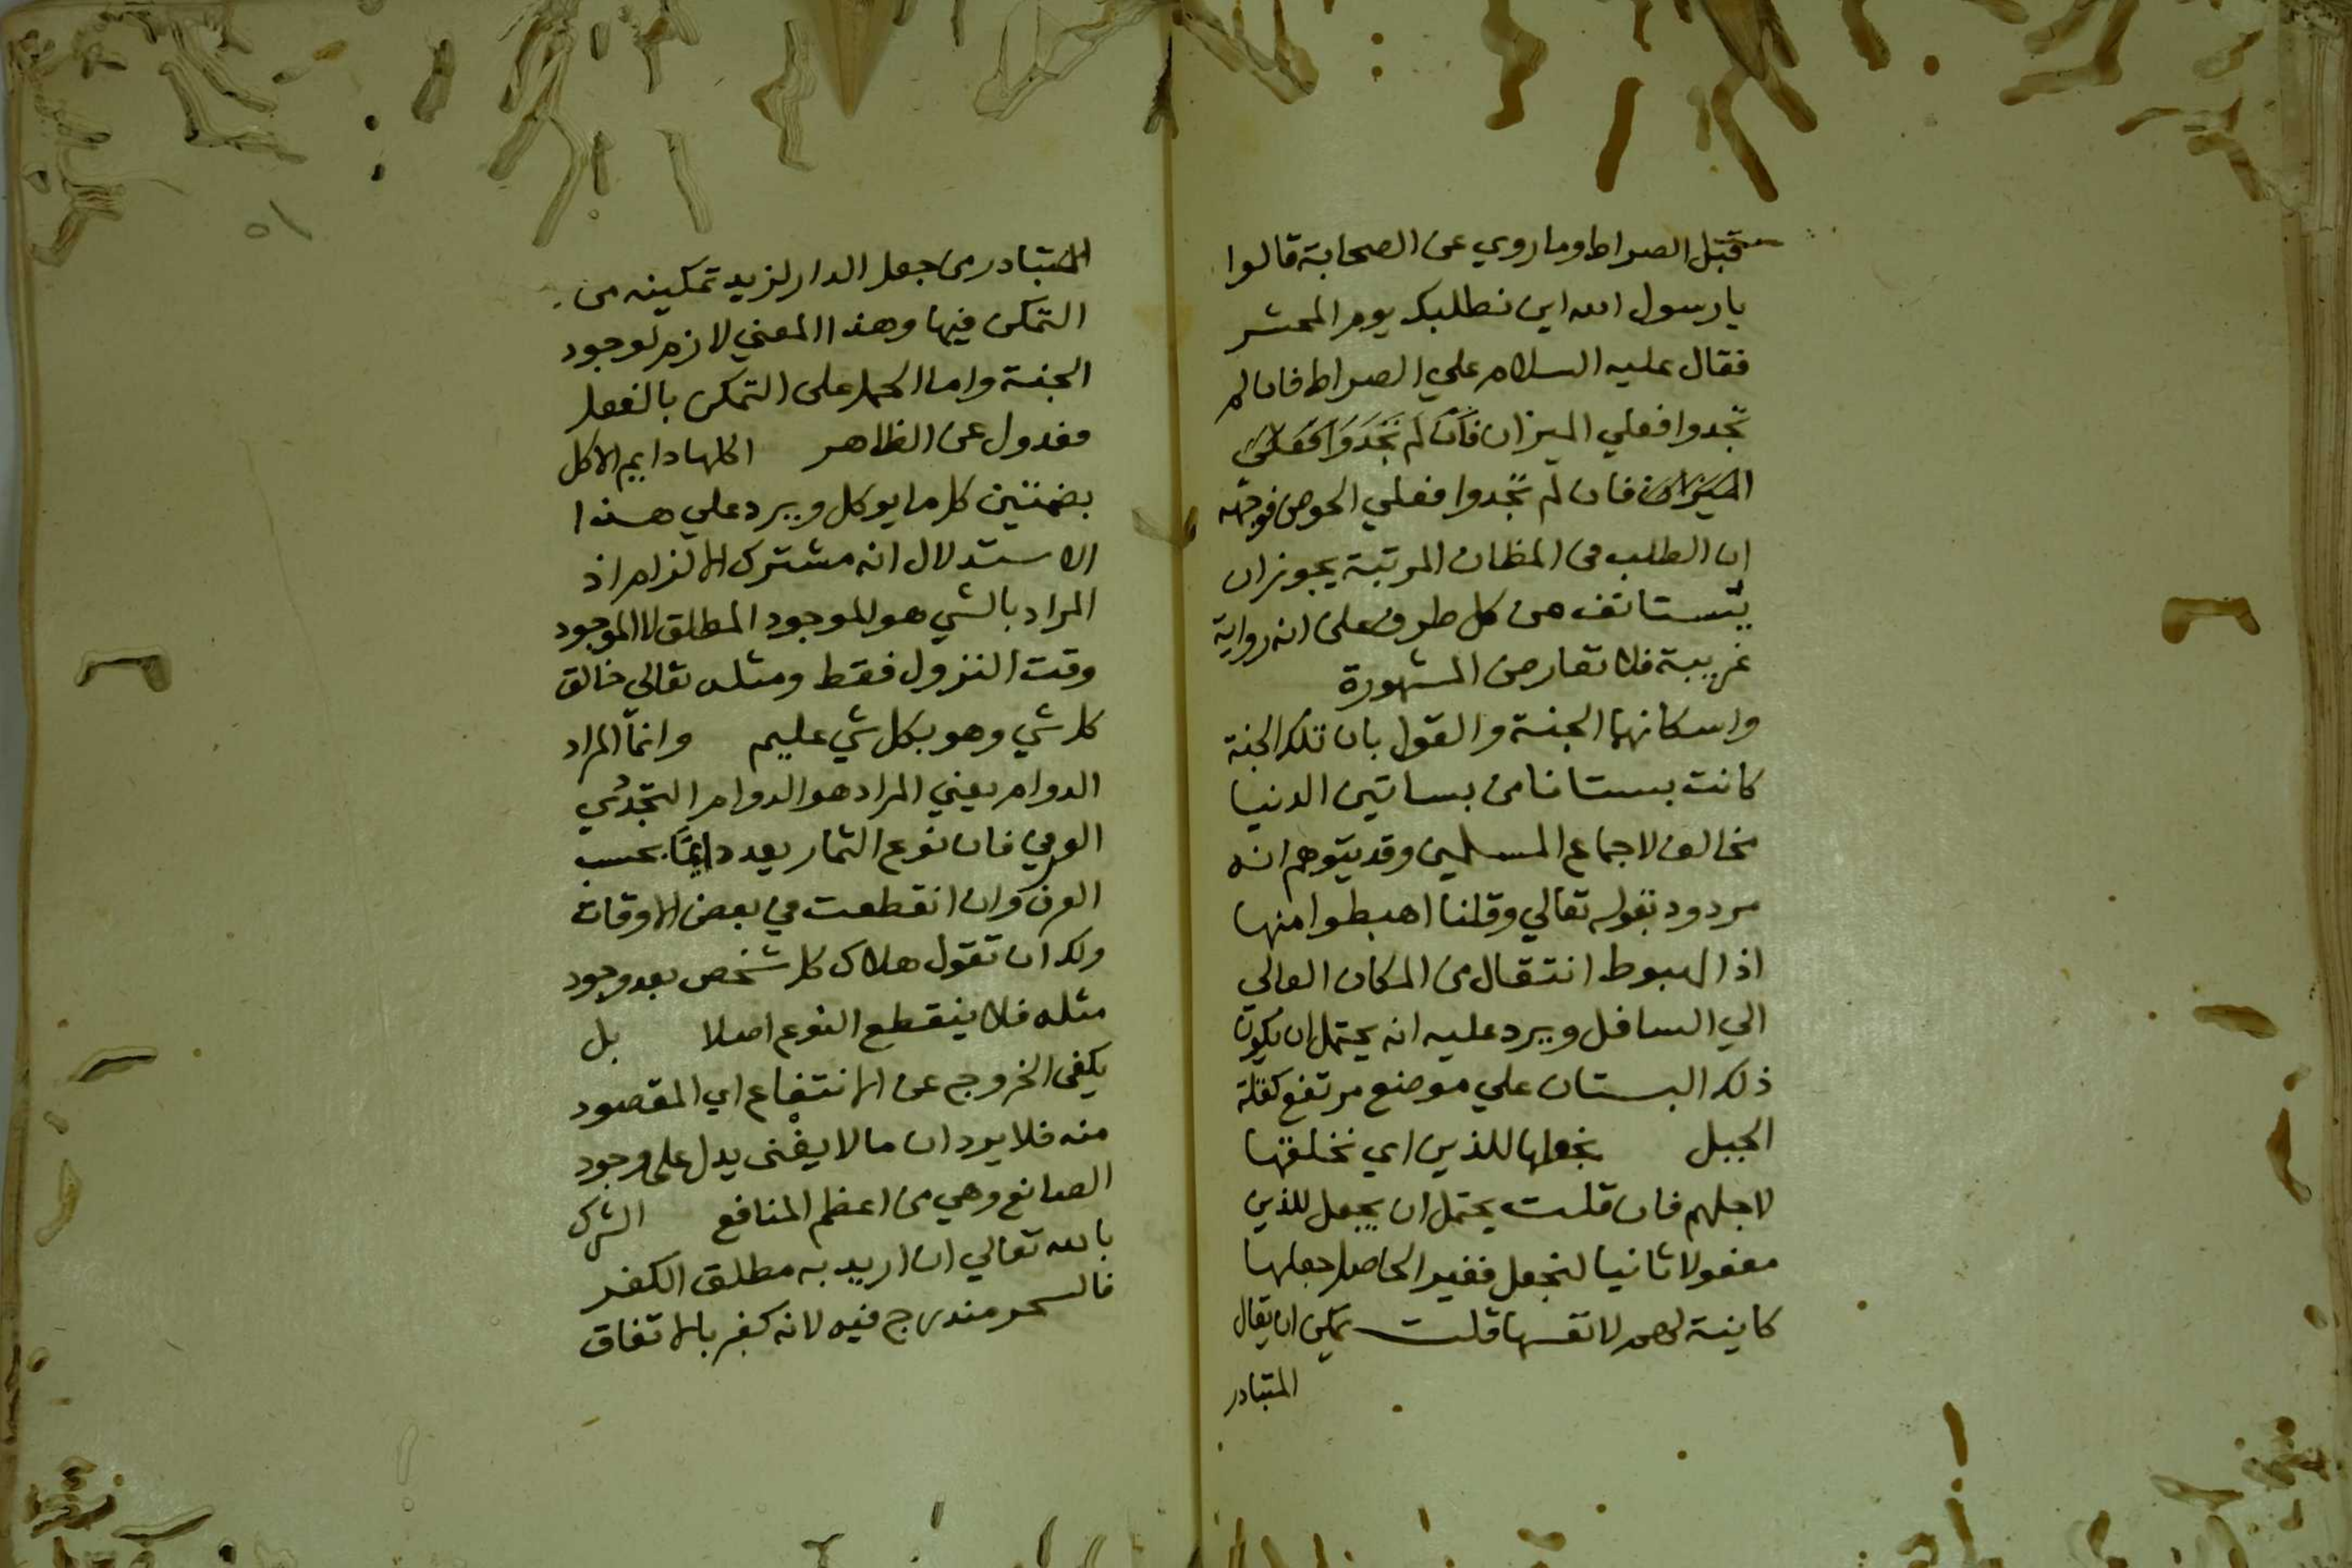 قبل الصراط وما روي عن الصحابة قالوا
يا رسول الله اين نطلبك يوم المحشر
فقال عليه السلام علي الصراط فان لم
تجدوا فعلي الميزان فان لم تجدوا فعلي
الميزان فان لم تجدوا فعلي الحوض فوجهه
ان الطلب من المظان المرتبة يجوز ان
يستانف من كل طرف على انه رواية
غريبة فلا تعارض المشهورة
واسكانهما الجنة والقول بان تلك الجنة
كانت بستانا من بساتين الدنيا
مخالف لاجماع المسلمين وقد يتوهم انه
مردود بقوله تعالي وقلنا اهبطوا منها
اذ الهبوط انتقال من المكان العالي
الي السافل ويرد عليه انه يحتمل ان يكون
ذلك البستان علي موضع مرتفع كقلة
الجبل نجعلها للذين اي نخلقها
لاجلهم فان قلت يحتمل ان يجعل للذين
مفعولا ثانيا لنجعل فغير الحاصل جعلها
كاينة لهم لا نفسها قلت يمكن ان يقال
المتبادر
٥١
المتبادر من جعل الدار لزيد تمكينه من
التمكن فيها وهذا المعني لازم لوجود
الجنة واما الحمل على التمكن بالفعل
فعدول عن الظاهر اكلها دايم الاكل
بضمتين كل ما يوكل ويرد علي هذا
الاستدلال انه مشترك الالزام اذ
المراد بالشي هو الموجود المطلق لا الموجود
وقت النزول فقط ومثله تعالي خالق
كل شي وهو بكل شي عليم وانما المراد
الدوام يعني المراد هو الدوام التجددي
العرفي فان نوع الثمار يعد دايما بحسب
العرف وان انقطعت في بعض الاوقات
ولك ان تقول هلاك كل شخص بعد وجود
مثله فلا ينقطع النوع اصلا بل
يكفي الخروج عن الانتفاع اي المقصود
منه فلا يرد ان ما لا يفنى يدل على وجود
الصانع وهي من اعظم المنافع الشرك
بالله تعالي ان اريد به مطلق الكفر
فالسحر مندرج فيه لانه كفر بالاتفاق